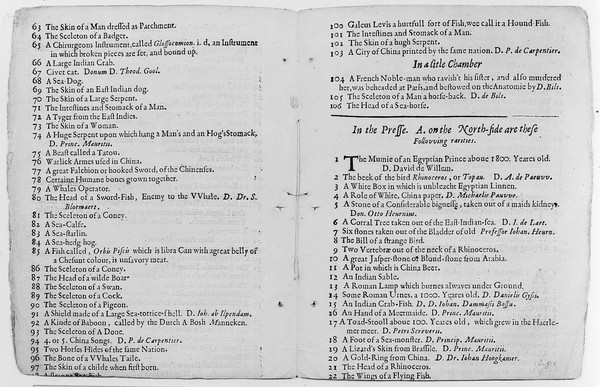 63 The Skin of a Man dressed as Parchment.
64 The Sceleton of a Badger.
65 A Chirurgeons Instrument, called Glossocomion. i. d, an Instrument
in which broken pieces are set, and bound up.
66 A Large Indian Crab.
67 Civet cat. Donum D. Theod. Gool.
68 A Sea-Dog.
69 The Skin of an East Indian dog.
70 The Skin of a Large Serpent.
71 The Intestines and Stomack of a Man.
72 A Tyger from the East Indies.
73 The Skin of a Woman.
74 A Huge Serpent upon which hang a Man's and an Hog's Stomack,
D. Princ. Mauritii.
75 A Beast called a Tatou.
76 Warlick Armes used in China.
77 A great Falchion or hooked Sword, of the Chinenses.
78 Certaine Humane bones grown together.
79 A Whales Operator.
80 The Head of a Sword-Fish, Enemy to the VVhale. D. Dr. S.
Bloemaert.
81 The Sceleton of a Coney.
82 A Sea-Calfe.
83 A Sea-starlin.
84 A Sea-hedg hog.
85 A Fish called, Orbis Piscis which is libra Can with agreat belly of
a Chesunt colour, is unsavory meat.
86 The Sceleton of a Coney.
87 The Head of a wilde Boar
88 The Sceleton of a Swan.
89 The Sceleton of a Cock.
90 The Sceleton of a Pigeon.
91 A Shield made of a Large Sea-tortice-shell. D. Joh. ab Ilpendam.
92 A Kinde of Baboon, called by the Dutch A Bosh Manneken.
93 The Sceleton of A Doe.
94 4. or 5. China Songs. D. P. de Carpentier.
95 Two Horses Hides of the same Nation.
96 The Bone of a VVhales Taile.
97 The Skin of a childe when first born.
100 Galeus Levis a hurtfull sort of Fish, wee call it a Hound-Fish.
101 The Intestines and Stomack of a Man.
102 The Skin of a hugh Serpent.
103 A City of China printed by the same nation. D. P. de Carpentier.
In a litle Chamber
104 A French Noble-man who ravish't his sister, and also murdered
her, was beheaded at Paris, and bestowed on the Anatomie by D. Bils.
105 The Sceleton of a Man a horse-back. D. de Bils.
106 The Head of a Sea-horse.
In the Presse. A. on the North-side are these
Following rarities.
1 The Mumie of an Egyptian Prince aboute 1800. Yeares old.
D. David de Willem.
2 The beek of the bird Rhinoceros, or Topau. D. A. de Pauvv.
3 A White Box in which is unbleacht Egyptian Linnen.
4 A Role of White, China paper, D. Michaelis Pauvv.
5 A Stone of a Considerable bignesse, taken out of a maids kidney.
Don. Otto Heurnius.
6 A Corral Tree taken out of the East-Indian-sea. D. J. de Laet.
7 Six stones taken out of the Bladder of old Professor Johan. Heurn.
8 The Bill of a strange Bird.
9 Two Vertebræ out of the neck of a Rhinoceros.
10 A great Jasper-stone or Bloud-stone from Arabia.
11 A Pot in which is China Beer.
12 An Indian Sable.
13 A Roman Lamp which burnes alwayes under Ground.
14 Some Roman Urnes, a 1000. Yeares old, D. Danielis Gysii.
15 An Indian Crab-Fish. D. D. Johan. Dammassii Bossu.
16 An Hand of a Meermaide. D. Princ. Mauritii.
17 A Toad-Stooll about 100. Yeares old, which grew in the Haerle-
mer meer. D. Petri Screverii.
18 A Foot of a Sea-monster. D. Princip. Mauritii.
19 A Lizard's Skin from Brasilie. D. Princ. Mauritii.
20 A Gold-Ring from China. D. Dr. Johan Hoogkamer.
21 The Head of a Rhinoceros.
22 The Wings of a Flying Fish.